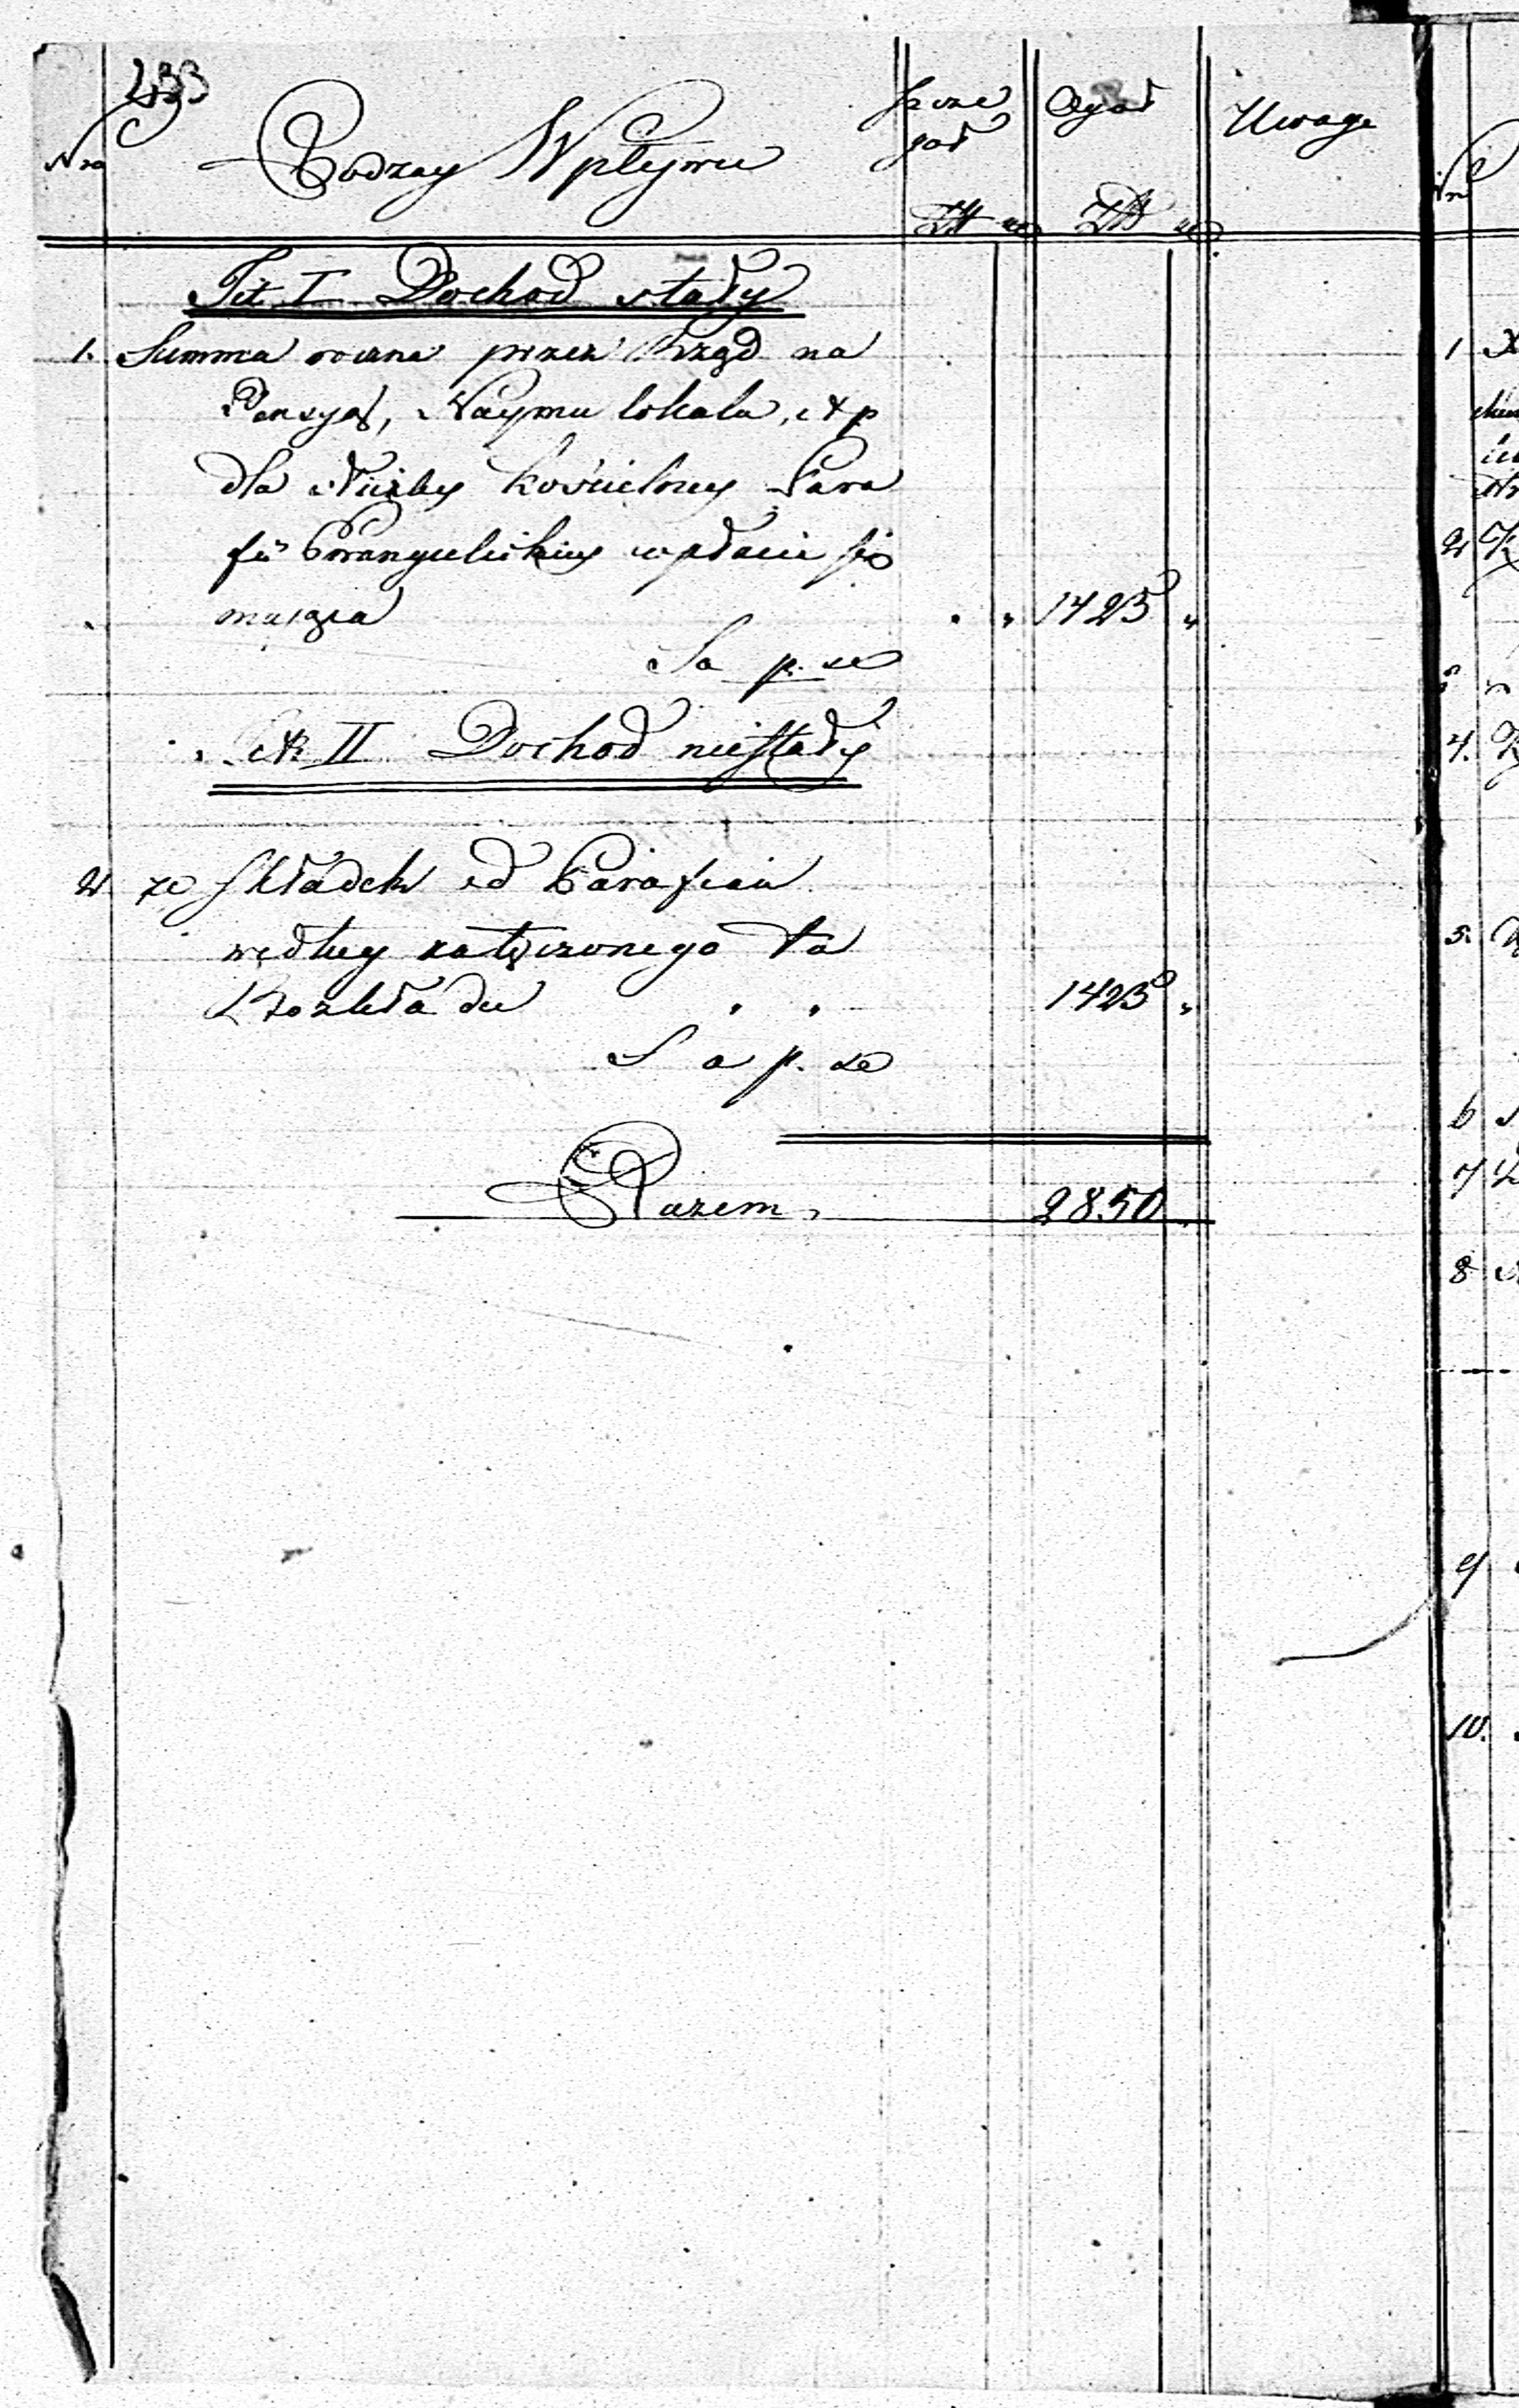 233
Nro Rodzay Wpływu Szcze Ogół Uwaga
guł
Zł gr Zł gr
Tit I Dochod stały
1. Summa roczna przez Rząd na
Pensyą, Naymu lokalu, etp
dla Służby kościelney Para
fii Ewangelickiey wpłacie się
maiąca " " 1425 "
Sa p. se
Tit II Dochod niestały
2 ze Składek od Parafian
według załączonego tu
Rozkładu " " 1425 "
S a p. se
Razem 2850